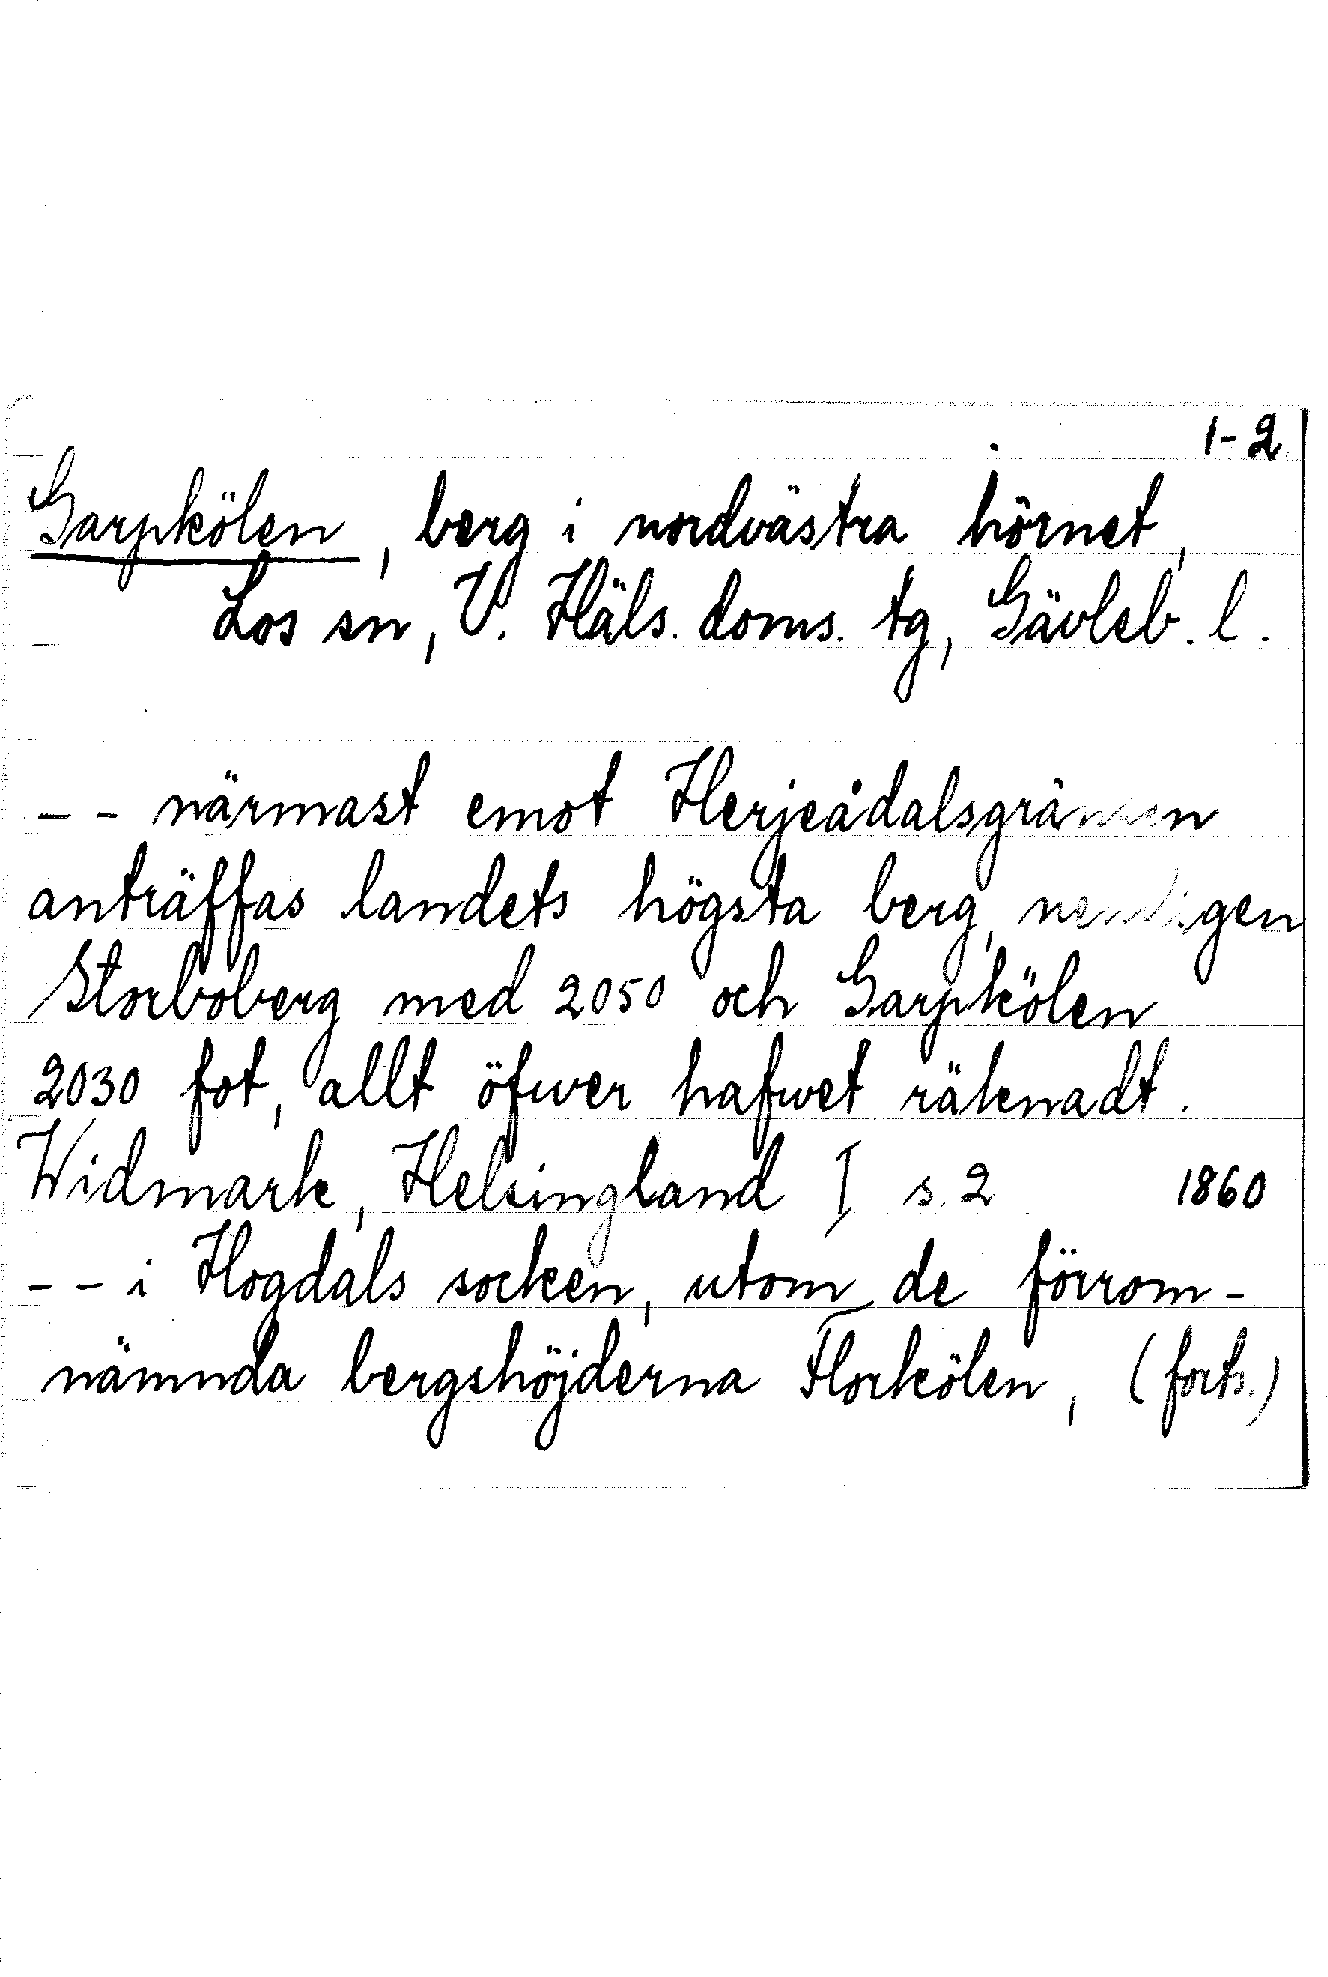 1-2
Garpkölen, berg i nordvästra hörnet,
Los sn, V. Häls. doms. tg, Gävleb. l.
-- närmast emot Herjeådalsgränsen
anträffas landets högsta berg, nemligen
Storboberg med 2050 och Garpkölen
2030 fot, allt öfwer hafwet räknadt.
Widmark, Helsingland I s. 2 1860
-- i Hogdals socken, utom de förrom-
nämnda bergshöjderna Florkölen, (forts.)